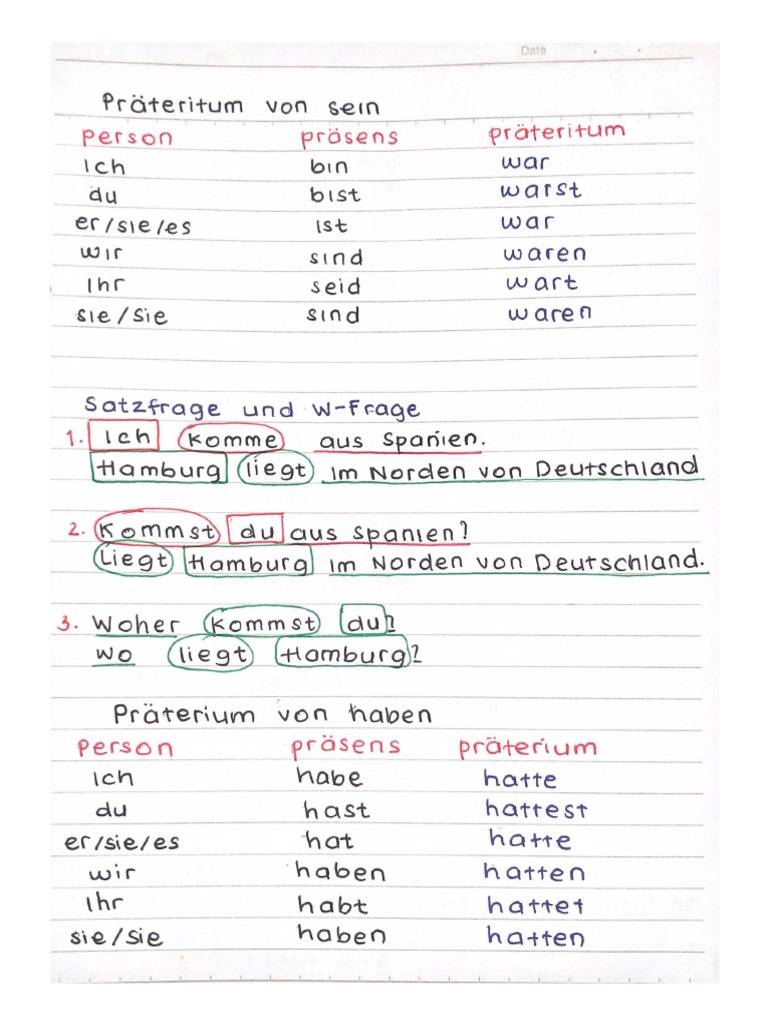 Date
Präteritum von sein
person präsens präteritum
Ich bin war
du bist warst
er/sie/es ist war
wir sind waren
Ihr seid wart
sie/Sie sind waren
Satzfrage und W-Frage
1. Ich komme aus Spanien.
Hamburg liegt im Norden von Deutschland
2. Kommst du aus Spanien?
Liegt Hamburg im Norden von Deutschland.
3. Woher kommst du?
Wo liegt Hamburg?
Präterium von haben
person präsens präterium
Ich habe hatte
du hast hattest
er/sie/es hat hatte
wir haben hatten
Ihr habt hattet
sie/Sie haben hatten